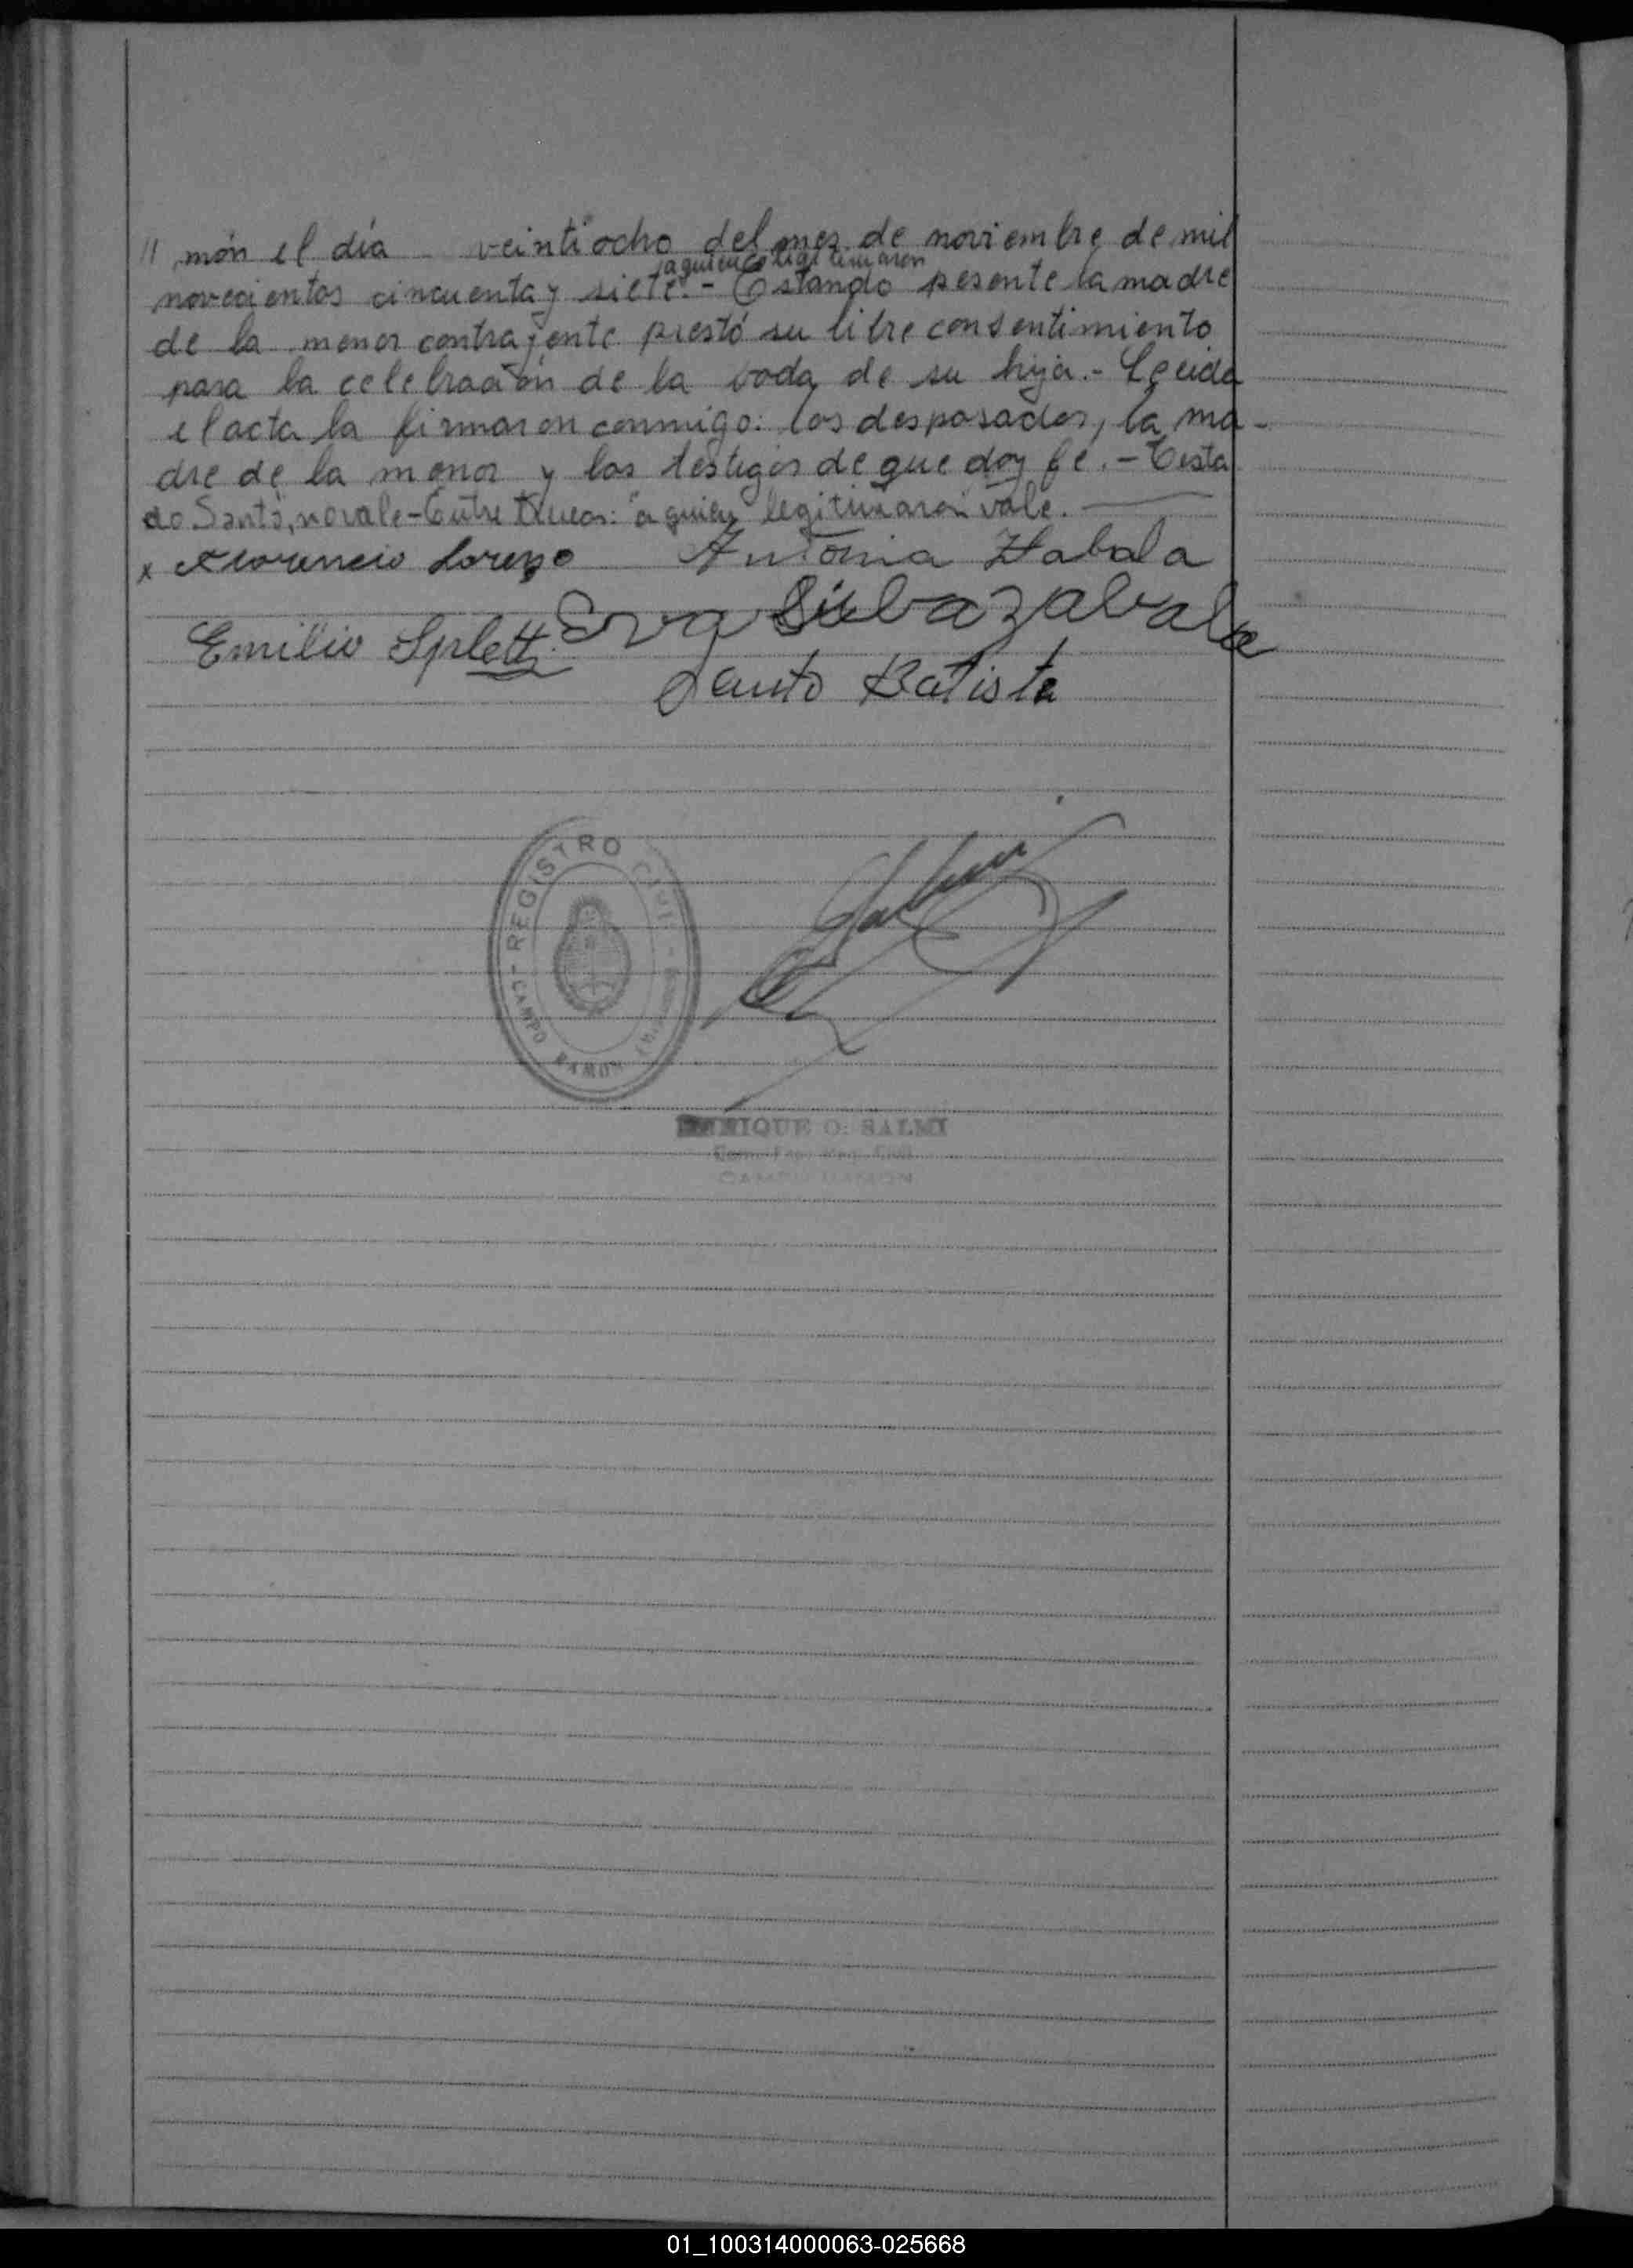 " món el día veintiocho del mes de noviembre de mil
a quienes legitimaron
novecientos cincuenta y siete.- Estando pesente la madre
de la menor contrayente prestó su libre consentimiento
para la celebración de la boda de su hija.- Leida
el acta la firmaron conmigo: los desposados, la ma-
dre de la menor y los testigos de que doy fé.- Testa
do Santo, no vale - Entre líneas: "a quienes legitimaron" vale.
x Florencio Lorenzo Antonia Zabala
Emilio Splett Eva Silva Zabala
Santo Batista
REGISTRO CIVIL - CAMPO RAMON
ENRIQUE O. SALMI
CAMPO RAMON
01_100314000063-025668